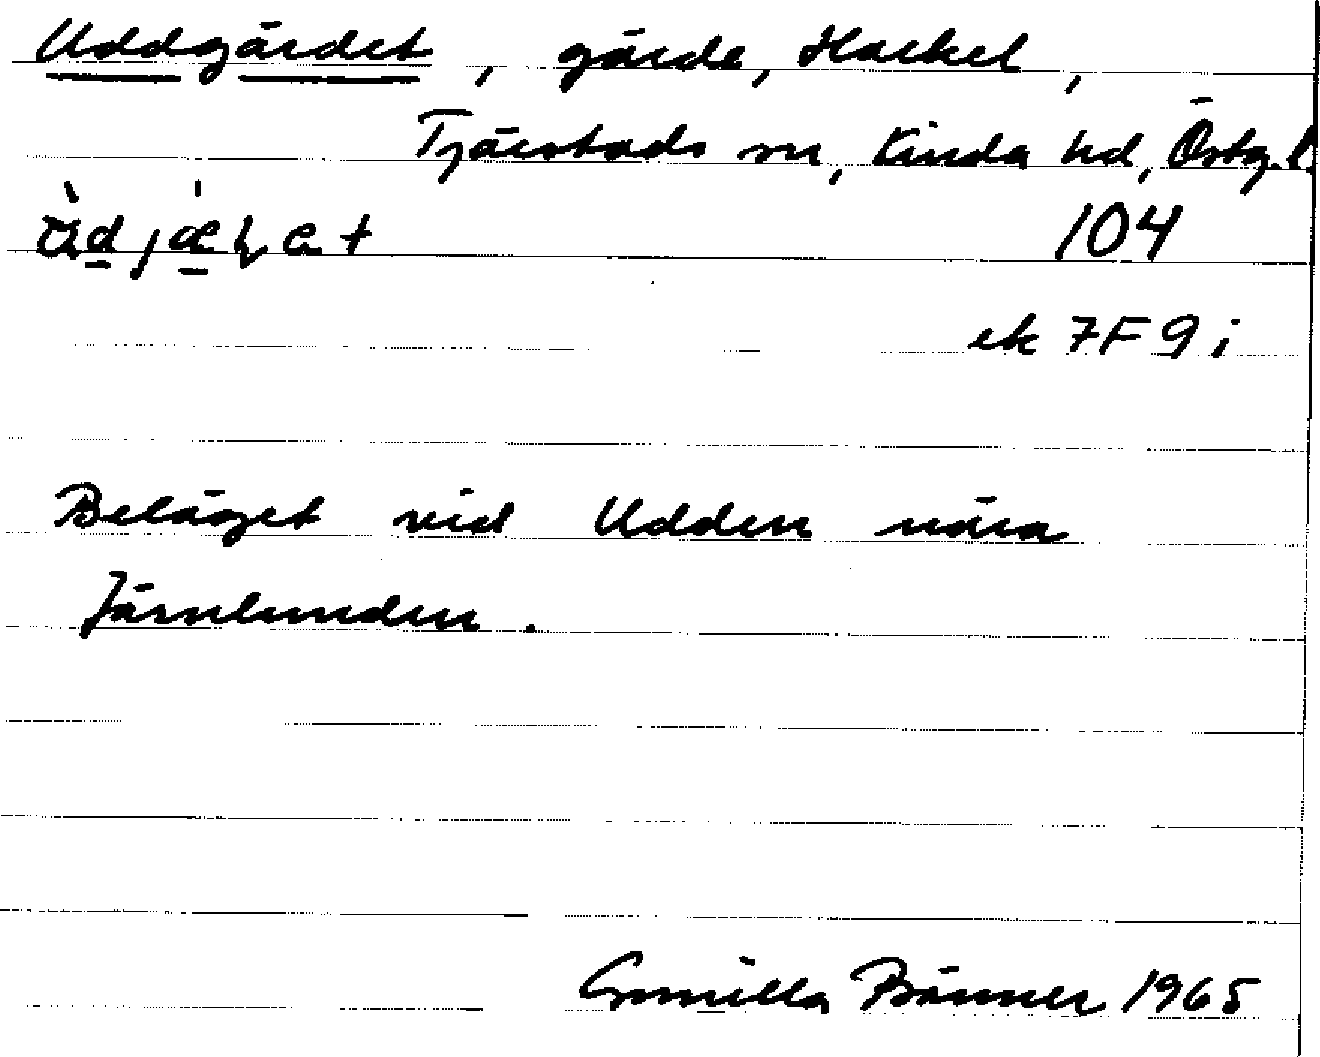 Uddgärdet, gärde, Hackel,
Tjärstads sn, Kinda hd, Östg.l.
104
ek 7F 9i
Beläget vid Udden nära
Järnlunden.
Gunilla Bänner 1965